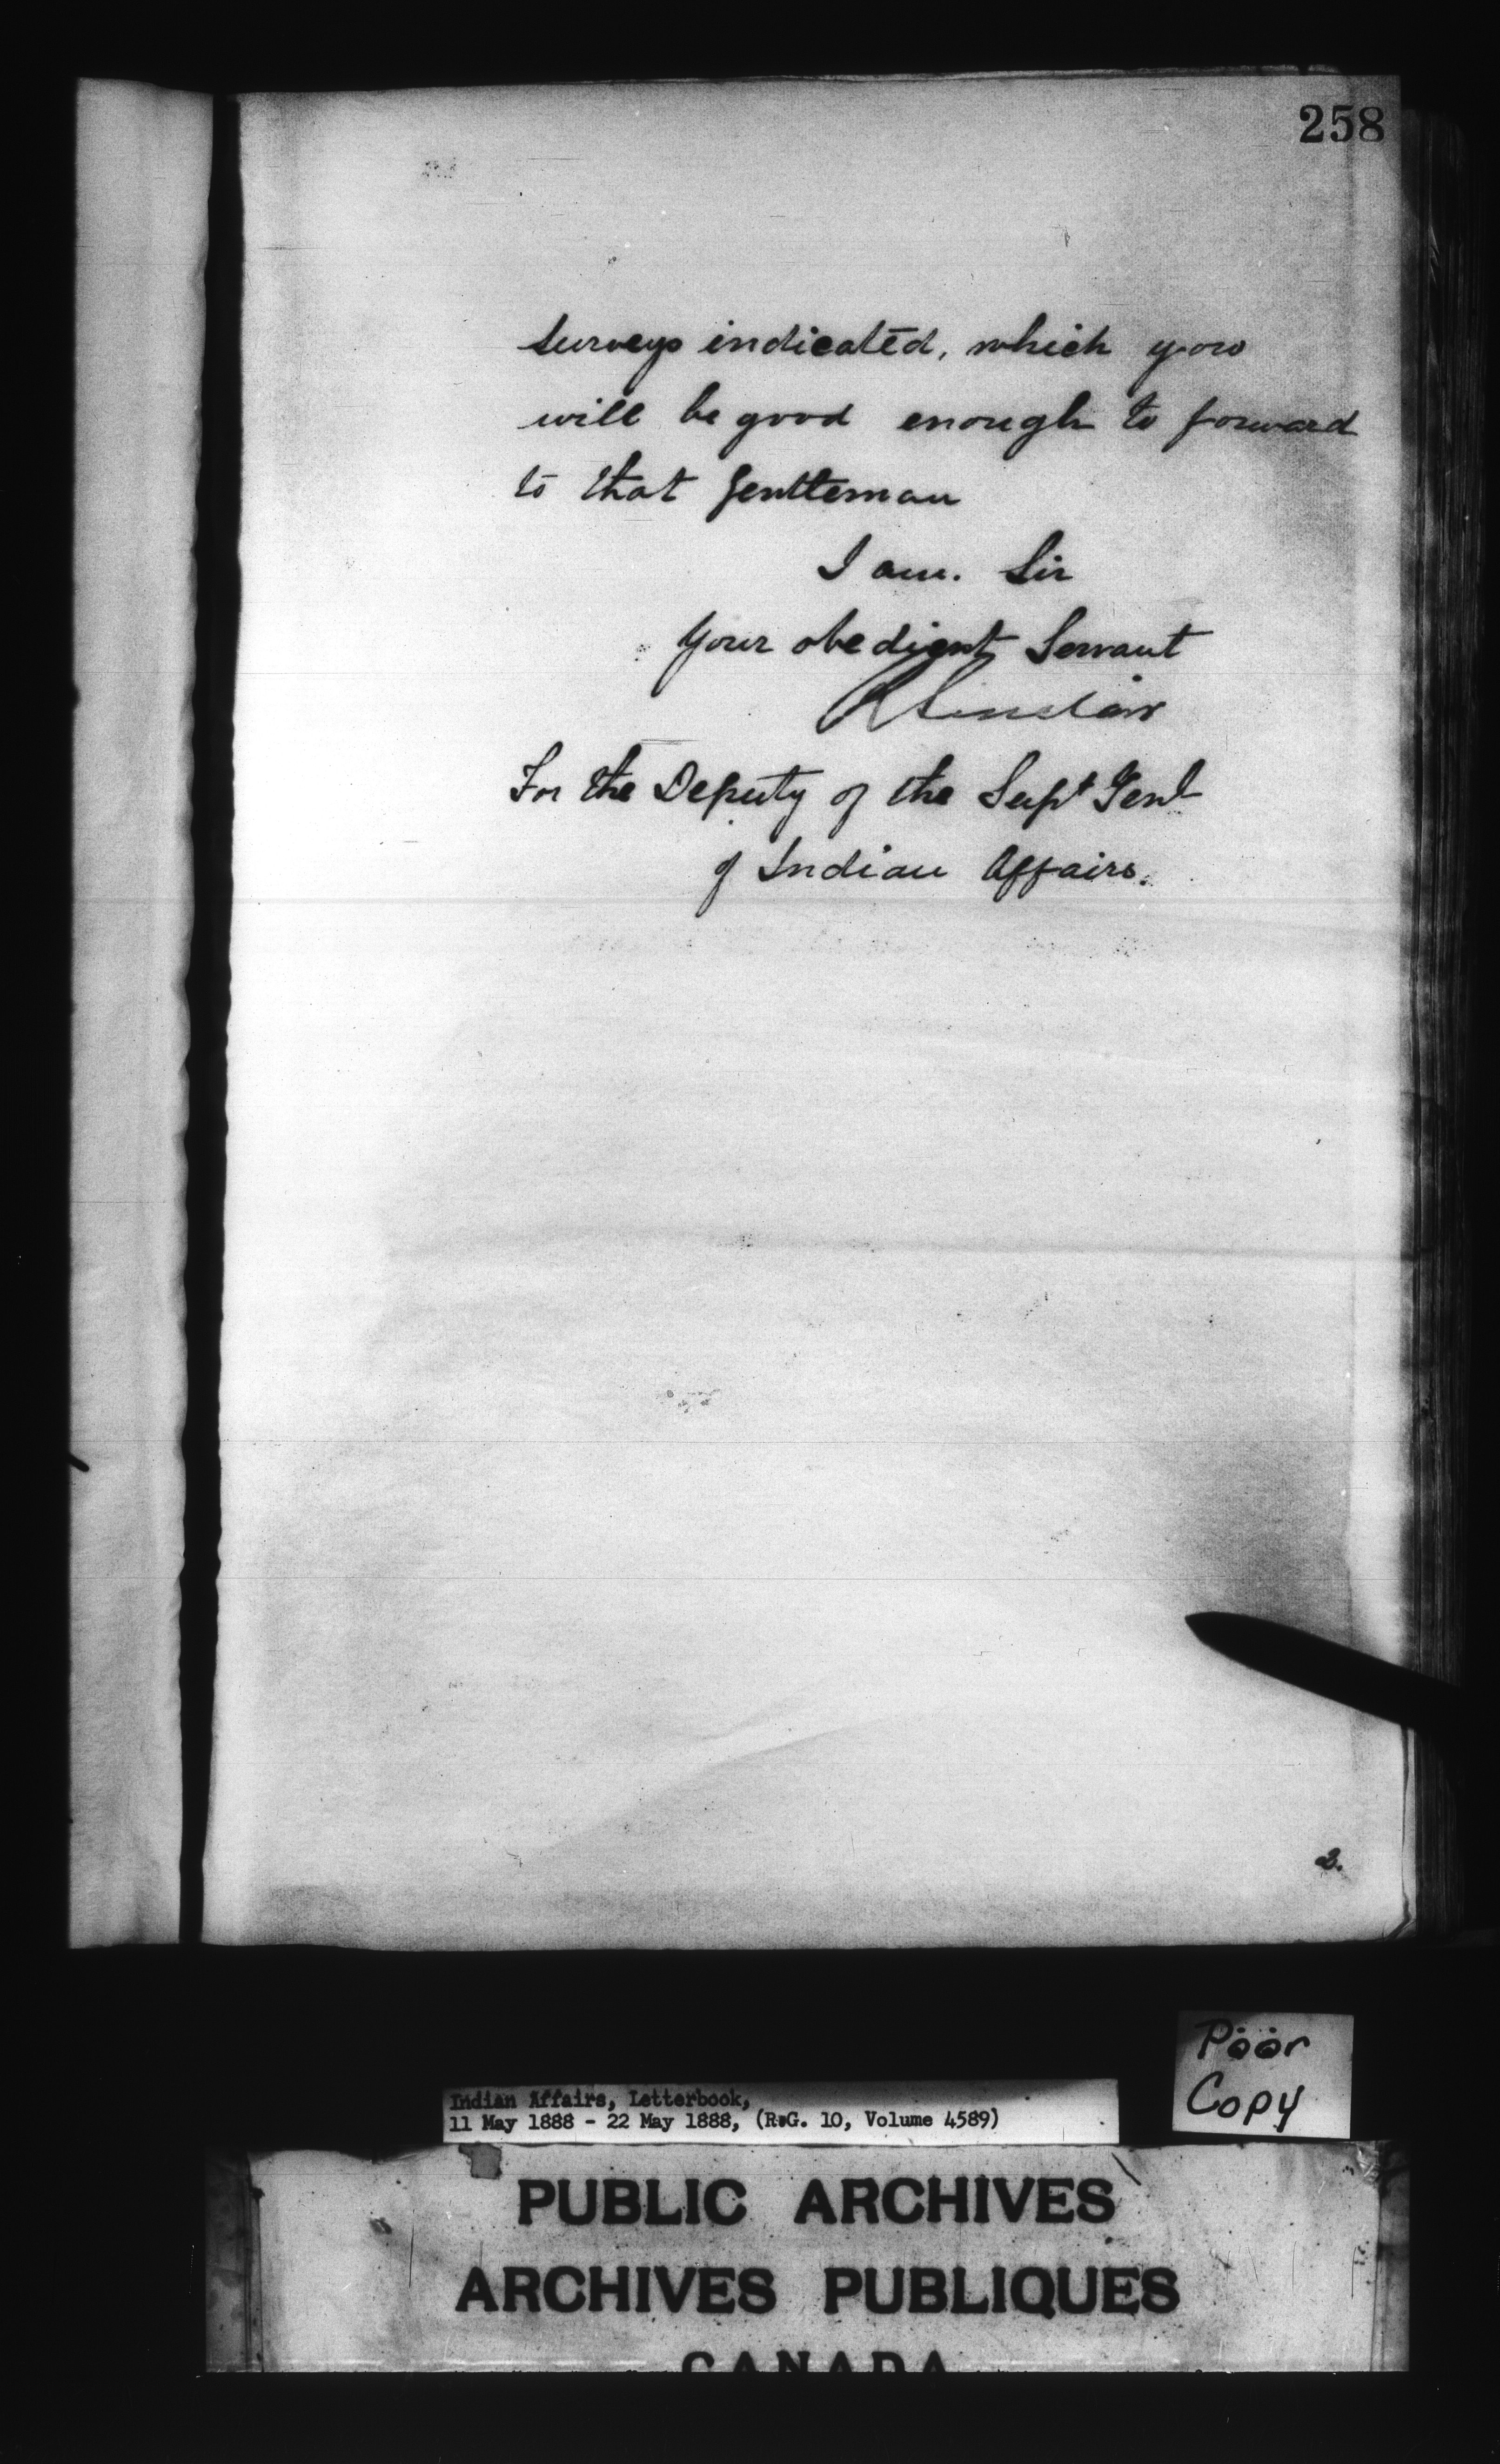 258
surveys indicated, which you
will be good enough to forward
to that Gentleman
I am. Sir
Your obedient Servant
R Sinclair
For the Deputy of the Supt Genl
of Indian Affairs.
2.
Poor
Copy
Indian Affairs, Letterbook,
11 May 1888 - 22 May 1888, (R.G. 10, Volume 4589)
PUBLIC ARCHIVES
ARCHIVES PUBLIQUES
CANADA